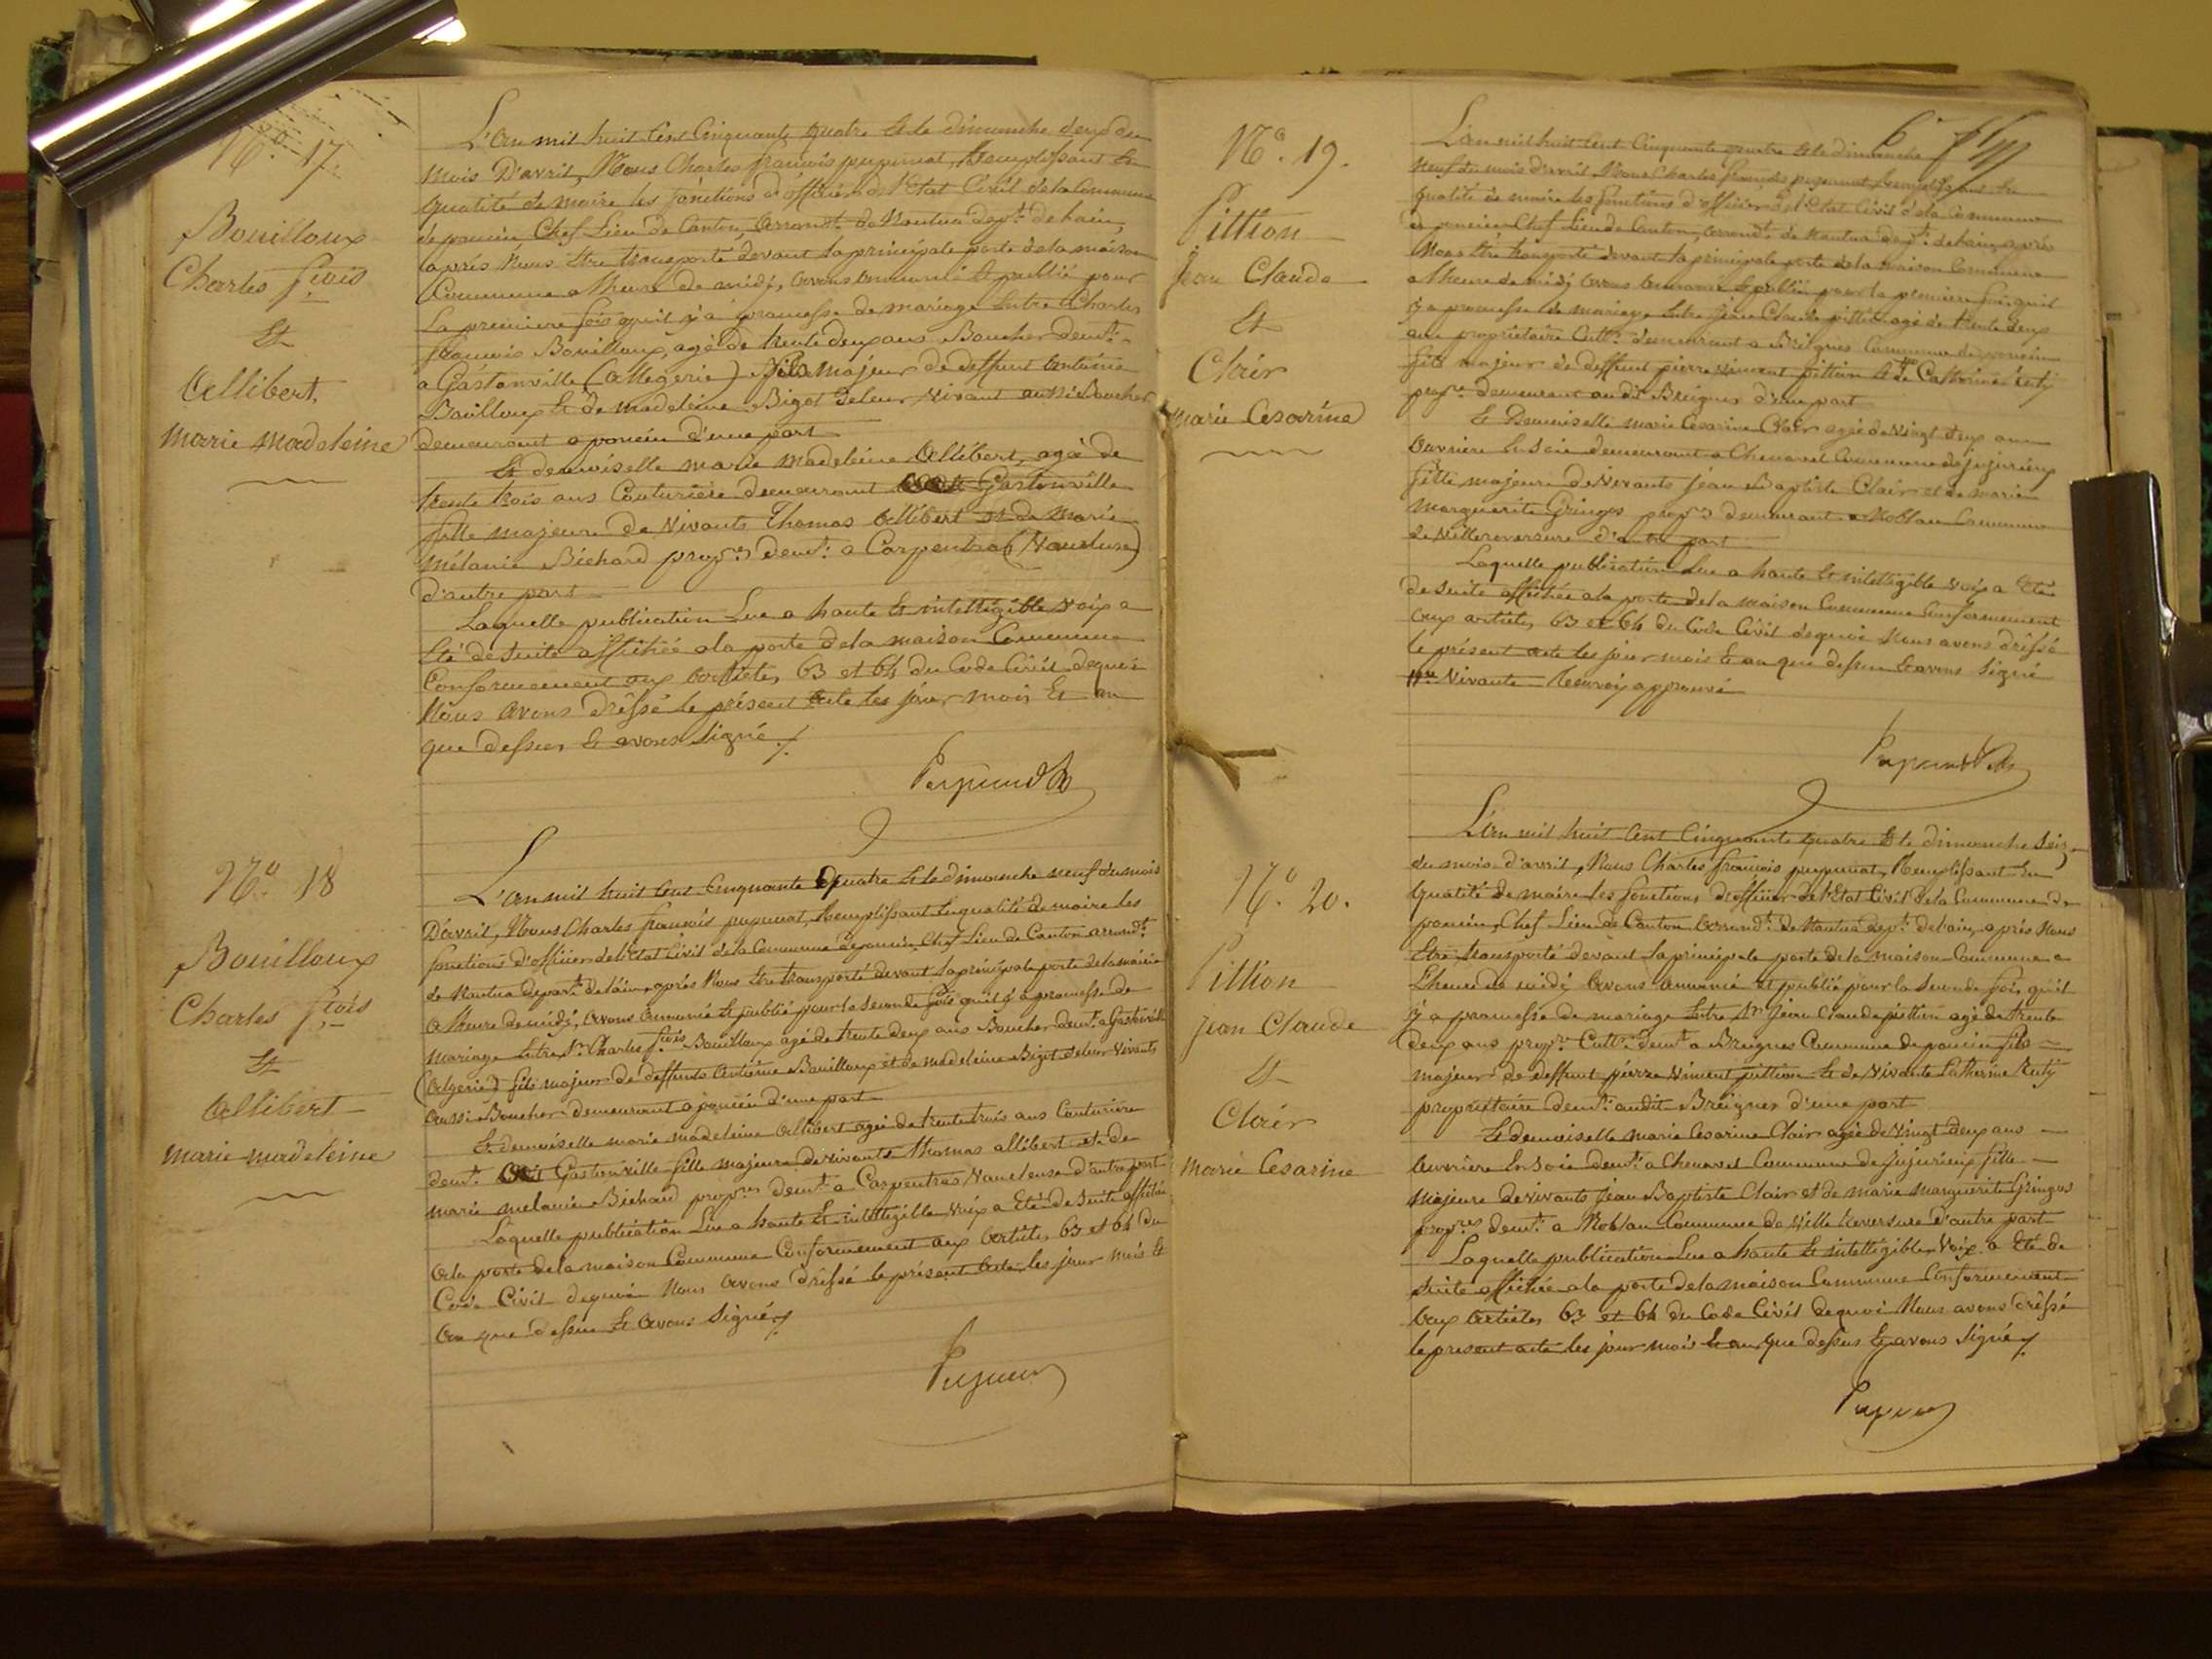 Nº. 17.
Bouilloux
Charles fçois
Et
Allibert
marie madeleine
L'an mil huit Cent Cinquante quatre Et le dimanche deux du
mois D'avril, Nous Charles françois pupunat, Remplissant En
qualité de maire les fonctions d'officier de l'Etat Civil de la Commune
de poncin Chef Lieu de Canton, Arrondt. de Nantua dept. de l'ain,
après Nous Etre transporté devant la principale porte de la maison
Commune a l'heure de midi, avons annoncé Et publié pour
La premiere fois qu'il y a promesse de mariage Entre Charles
françois Bouilloux, agé de trente deux ans Boucher demt.
a Gastonville (Allegerie) fils majeur de deffunt antoine
Bouilloux Et de madeleine Bigot deleur vivant aussi Boucher
demeurant a poncin d'une part
Et demoiselle marie madeleine Allibert, agée de
trente trois ans Couturière demeurant Gastonville
fille majeure de vivants Thomas Allibert et de Marie
Mélanie Bichard propres demt. a Carpentras (Vaucluse)
d'autre part
Laquelle publication Lue a haute Et intelligible voix a
Eté de suite affichée a la porte de la maison Commune
Conformement aux articles 63 et 64 du Code Civil dequoi
Nous avons dréssé le présent acte les jour mois Et an
que dessus Et avons signé
Nº. 18
Bouilloux
Charles fçois
Et
Allibert
marie madeleine
L'an mil huit Cent Cinquante quatre Et le dimanche neuf du mois
D'avril, Nous Charles françois pupunat, Remplissant En qualité de maire les
fonctions d'officier de l'Etat Civil de la Commune de poncin, Chef Lieu de Canton arrondt.
de Nantua depart. de l'ain, après Nous Etre transporté devant la principale porte de la mairie
a l'heure de midi, avons annoncé Et publié pour la seconde fois qu'il y a promesse de
mariage Entre Sr. Charles fçois Bouilloux agé de trente deux ans Boucher demt. a Gastonville
(Algerie) fils majeur de deffunts Antoine Bouilloux et de madeleine Bigot deleur vivants
aussi Boucher demeurant a poncin d'une part
Et demoiselle marie madeleine Allibert agée de trente trois ans Couturière
demt. Gastonville fille majeure de vivants thomas allibert et de
marie melanie Bichard propres demt. a Carpentras Vaucleuse d'autre part
Laquelle publication Lue a haute Et intelligible voix a Eté de suite affichée
a la porte de la maison Commune Conformement aux articles 63 et 64 du
Code Civil dequoi Nous avons dréssé le présent acte les jour mois Et
an que dessus Et avons signé
Nº. 19.
Pittion
Jean Claude
Et
Clair
marie Cesarine
6
L'an mil huit Cent Cinquante quatre Et le dimanche
neuf du mois d'avril Nous Charles François pupunat, Remplissant En
qualité de maire les fonctions d'officier de l'Etat Civil de la Commune
de poncin Chef Lieu de Canton, arrondt. de Nantua dept. de l'ain, après
Nous Etre transporté devant la principale porte de la maison Commune
a l'heure de midi avons annoncé Et publié pour la premiere fois qu'il
y a promesse de mariage Entre Jean Claude pittion agé de trente deux
ans propriétaire Cultr. demeurant a Breignes Commune de poncin
fils majeur de deffunt pierre vincent pittion Et de Catherine Ruty
propre. demeurant audit Breignes d'une part
Et Demoiselle marie Cesarine Clair agée de vingt deux ans
ouvriere En soie demeurant a Chenavel Commune de jujurieux
fille majeure de vivants Jean Baptiste Clair et de marie
marguerite Gringos propres demeurant a Noblan Commune
de Villereversure d'autre part
Laquelle publication Lue a haute Et intelligible voix a Eté
de suite affichée a la porte de la maison Commune Conformement
aux articles 63 et 64 du Code Civil dequoi Nous avons dréssé
le présent acte les jour mois Et an que dessus Et avons signé
Vivante Renvoi approuvé
Nº. 20.
Pittion
Jean Claude
Et
Clair
Marie Cesarine
L'an mil huit Cent Cinquante quatre Et le dimanche seize
du mois d'avril, Nous Charles françois pupunat, Remplissant En
qualité de maire les fonctions d'officier de l'Etat Civil de la Commune de
poncin, Chef Lieu de Canton Arrondt. de Nantua dept. de l'ain, après Nous
Etre transporté devant la principale porte de la maison Commune a
L'heure de midi avons annoncé et publié pour la seconde fois qu'il
y a promesse de mariage Entre Sr. Jean Claude pittion agé de trente
deux ans propre. Cultr. demt. a Breignes Commune de poncin fils
majeur de deffunt pierre vincent pittion Et de vivante Catherine Ruty
propriétaire demt. audit Breignes d'une part
Et demoiselle marie Cesarine Clair agée de vingt deux ans
ouvriere En soie demt. a Chenavel Commune de Jujurieux fille
Majeure de vivants Jean Baptiste Clair et de marie marguerite Gringos
propres. demt. a Noblan Commune de Ville Reversure d'autre part
Laquelle publication Lue a haute Et intelligible voix a Eté de
suite affichée a la porte de la maison Commune Conformement
aux articles 63 et 64 du Code Civil dequoi Nous avons dréssé
le present acte les jour mois Et an que dessus Et avons signé